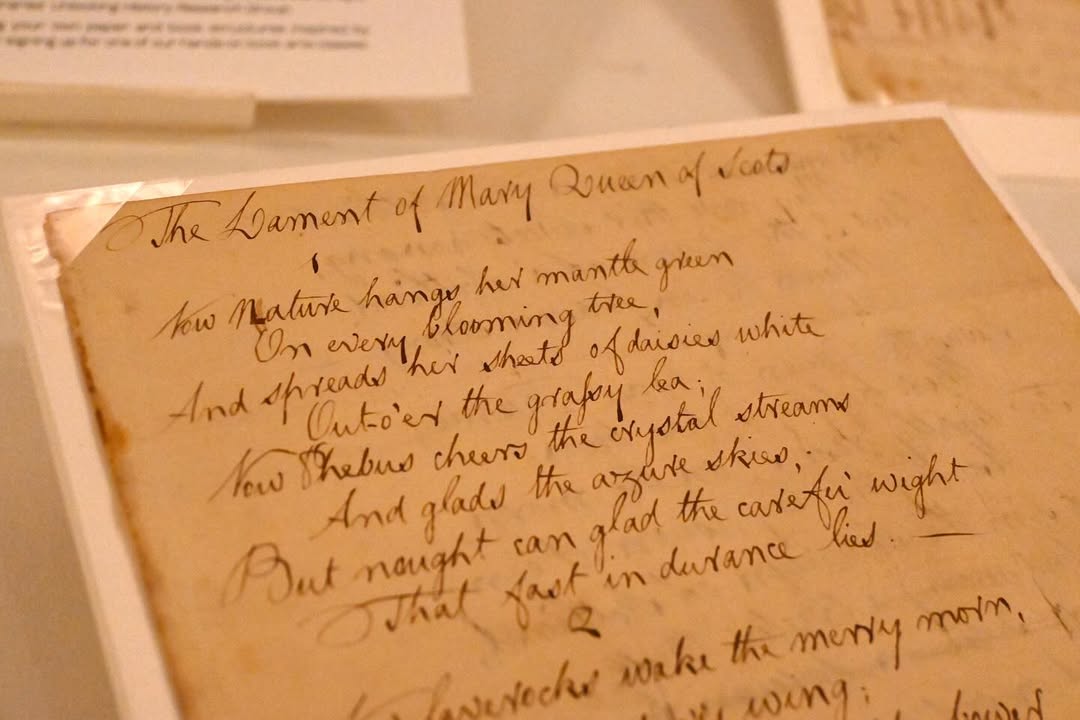 Unlocking History Research Group
your own paper and book structures inspired by
signing up for one of our hands-on book arts classes
The Lament of Mary Queen of Scots
1
Now Nature hangs her mantle green
On every blooming tree,
And spreads her sheets of daisies white
Out-o'er the graſsy lea;
Now Phebus cheers the crystal streams
And glads the azure skies,
But nought can glad the carefu' wight
That fast in durance lies. —
2
laverocks wake the merry morn,
wing;
bower